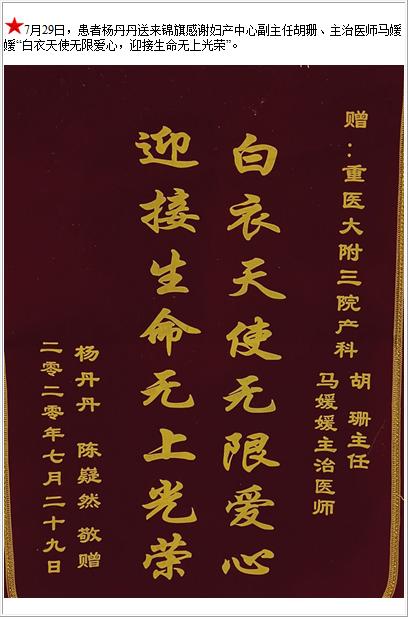 7月29日，患者杨丹丹送来锦旗感谢妇产中心副主任胡珊、主治医师马媛
媛“白衣天使无限爱心，迎接生命无上光荣”。
赠：重医大附三院产科
胡珊主任
马媛媛主治医师
白衣天使无限爱心
迎接生命无上光荣
杨丹丹 陈疑然 敬赠
二零二零年七月二十九日